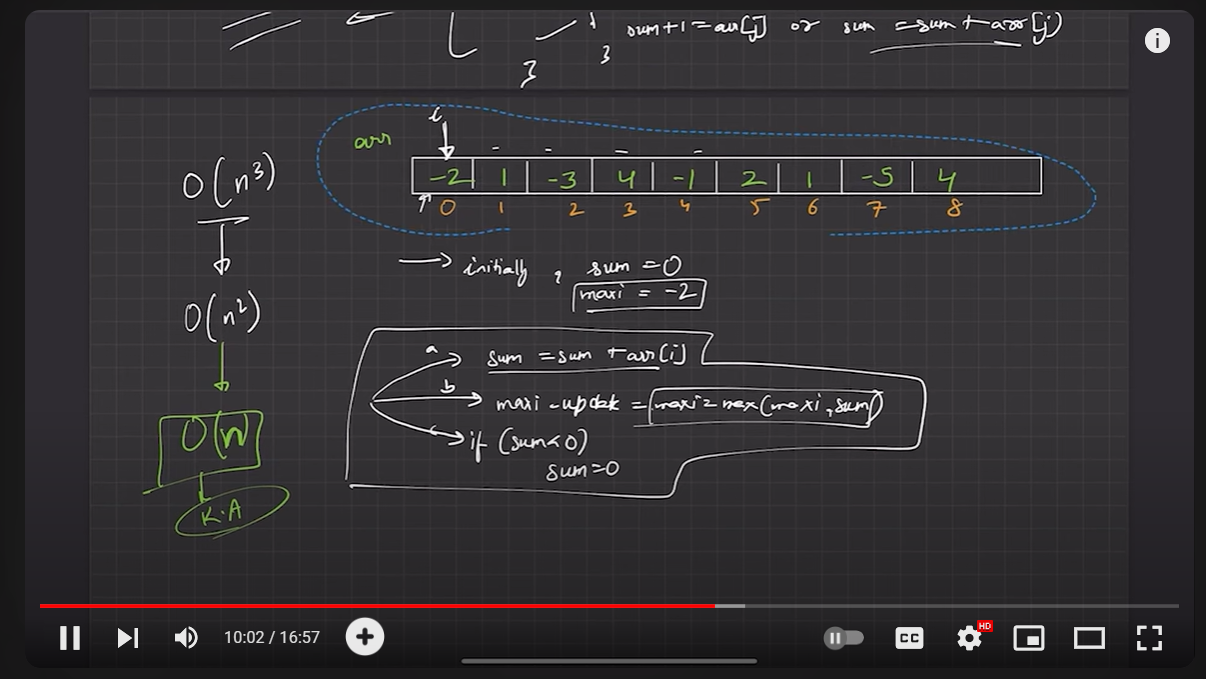 sum+1=arr[j] or sum =sum+arr[j)
}
}
arr
i
-2 1 -3 4 -1 2 1 -5 4
0 1 2 3 4 5 6 7 8
O(n³)
→ initially, sum =0
maxi = -2
O(n²)
a sum =sum +arr[i]
b maxi -update = maxi=max(maxi,sum)
c if (sum<0)
sum=0
O(n)
K.A
10:02 / 16:57
CC
HD